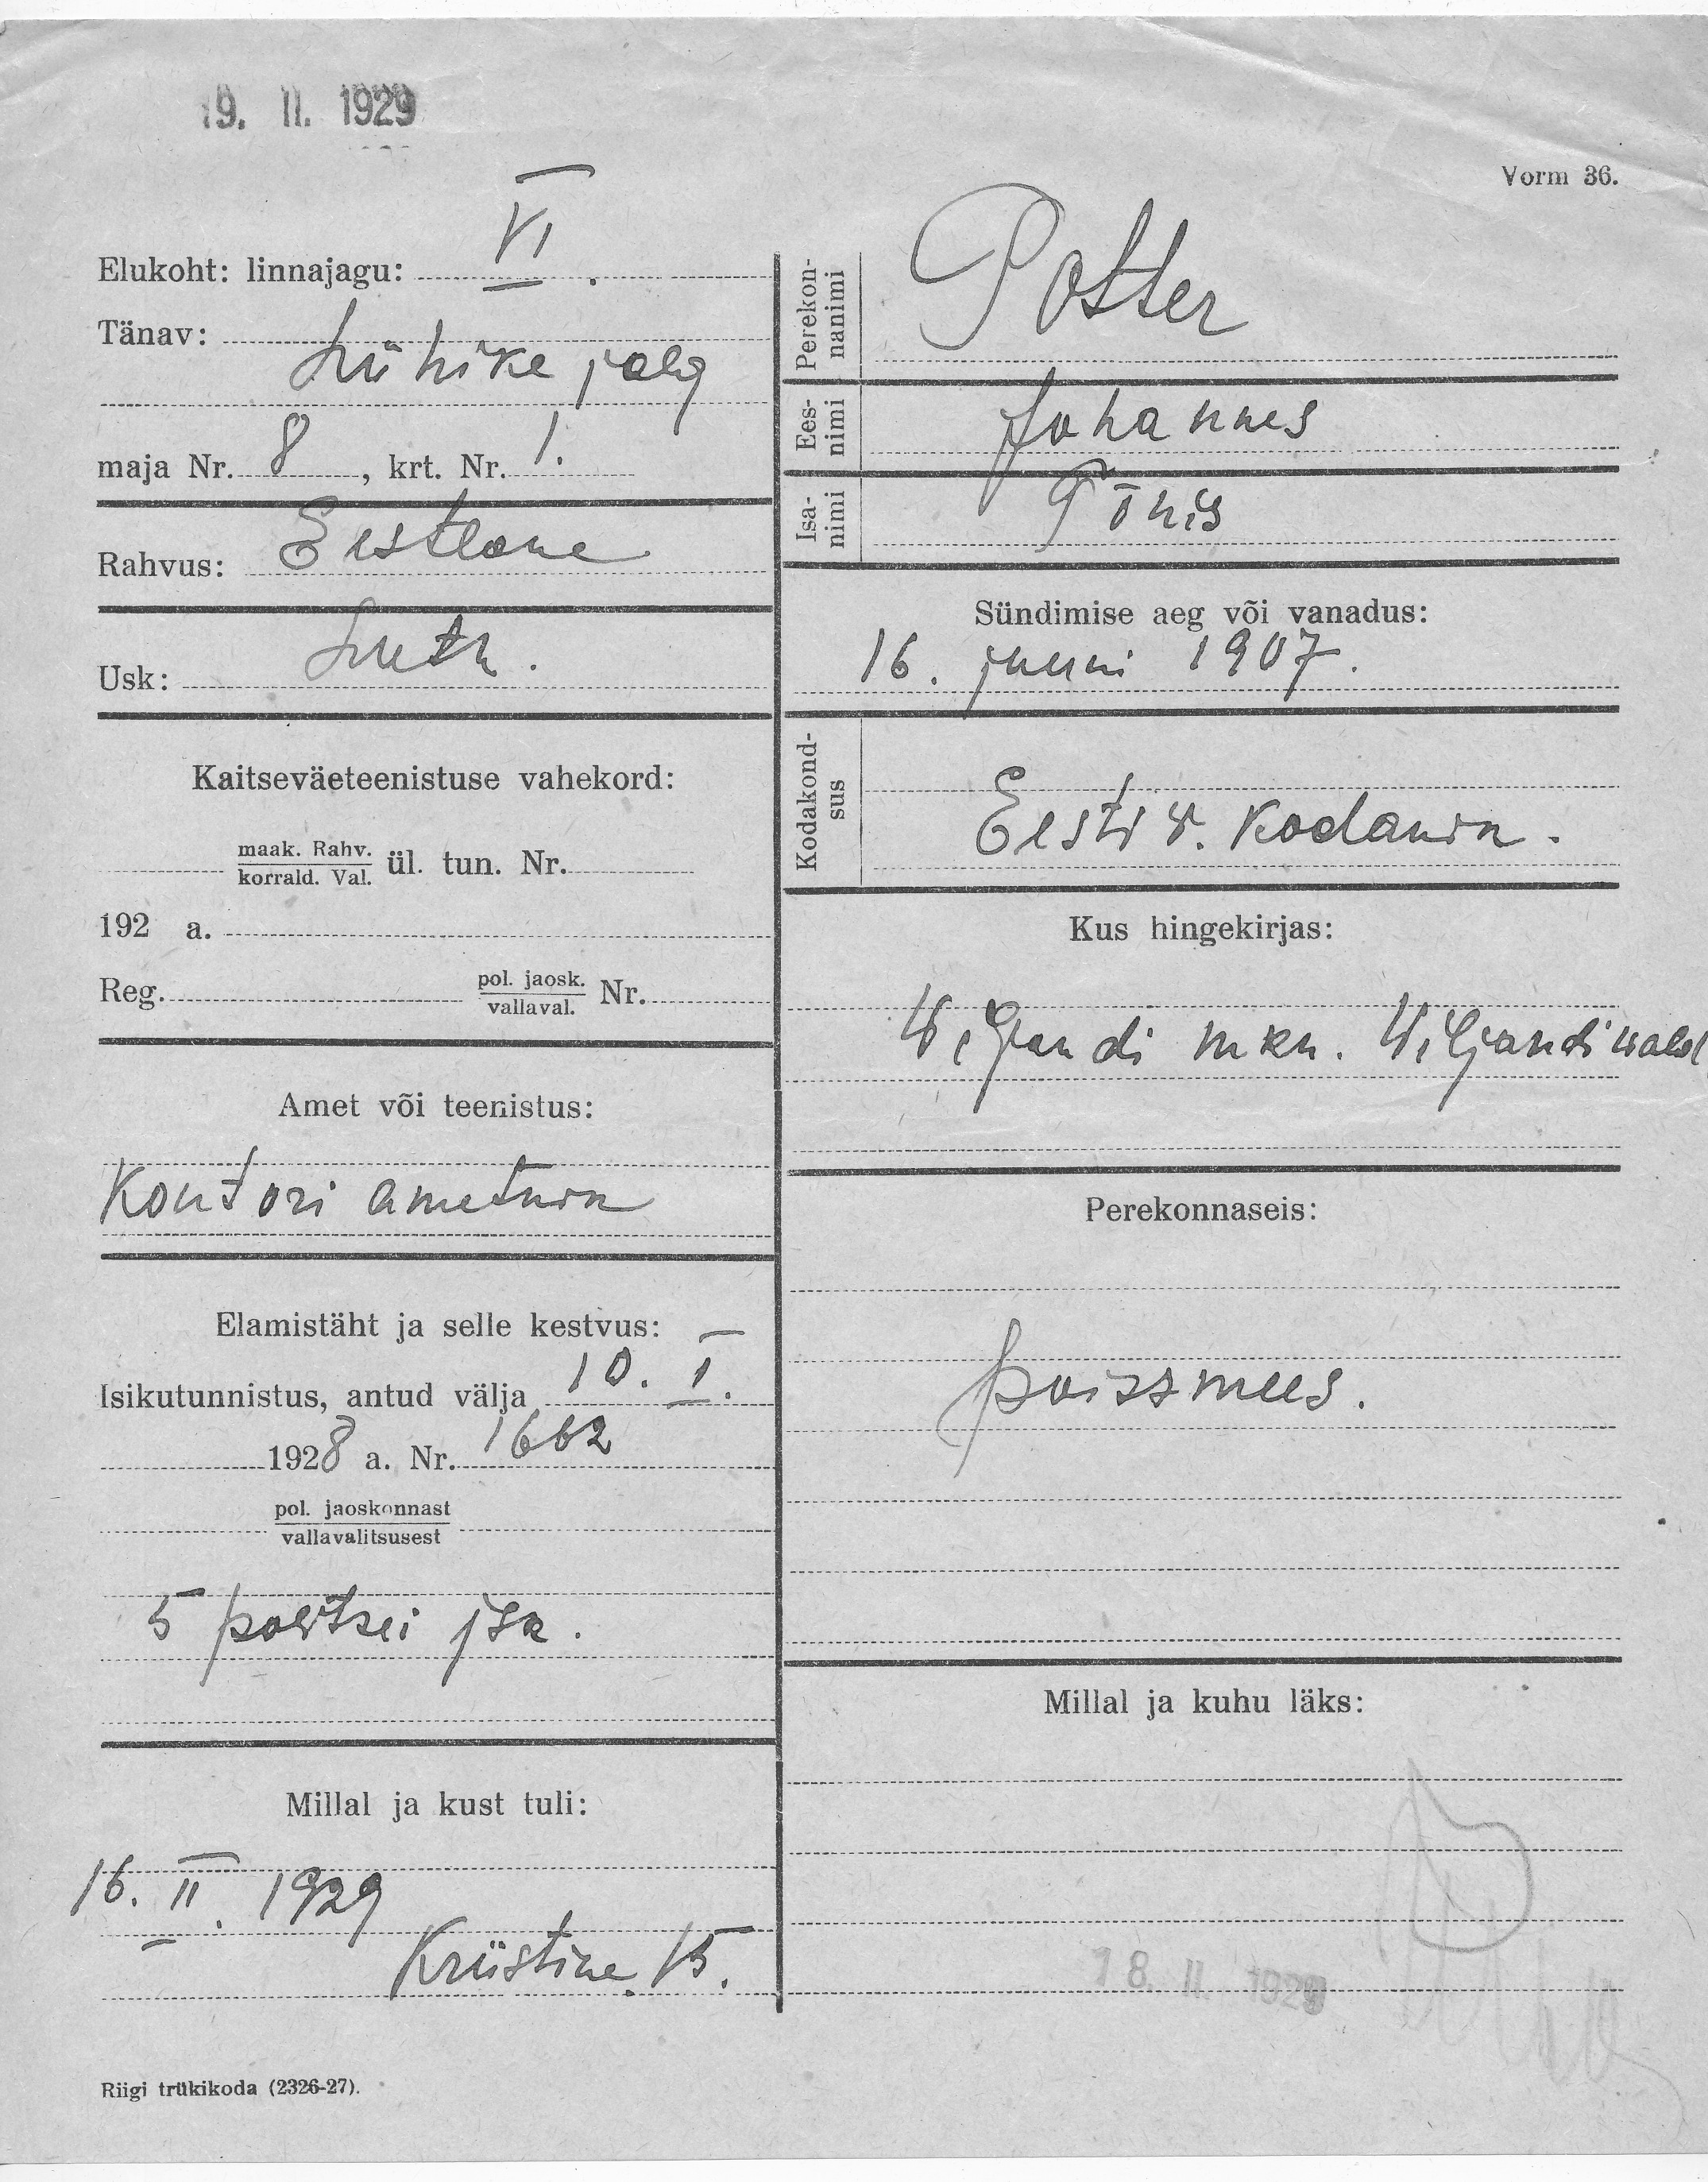 19. II. 1929
Vorm 36.
Elukoht: linnajagu: VI.
Tänav:
Lühike jalg
maja Nr. 8, krt. Nr. 1.
Rahvus: Eestlane
Usk: Luth.
Kaitseväeteenistuse vahekord:
maak. Rahv.
korrald. Val. ül. tun. Nr.
192 a.
Reg. pol. jaosk.
vallaval. Nr.
Amet või teenistus:
Kontori ametnik
Elamistäht ja selle kestvus:
Isikutunnistus, antud välja 10. I.
1928 a. Nr. 1662
pol. jaoskonnast
vallavalitsusest
5 politsei jsk.
Millal ja kust tuli:
16. II. 1929
Kriistine 15.
Riigi trükikoda (2326-27).
Perekon-
nanimi
Potter
Ees-
nimi
Johannes
Isa-
nimi
Tõnis
Sündimise aeg või vanadus:
16. juuni 1907.
Kodakond-
sus
Eesti v. kodanik.
Kus hingekirjas:
Wiljandi mkn. Wiljandi wald
Perekonnaseis:
poissmees.
Millal ja kuhu läks:
18. II. 1929